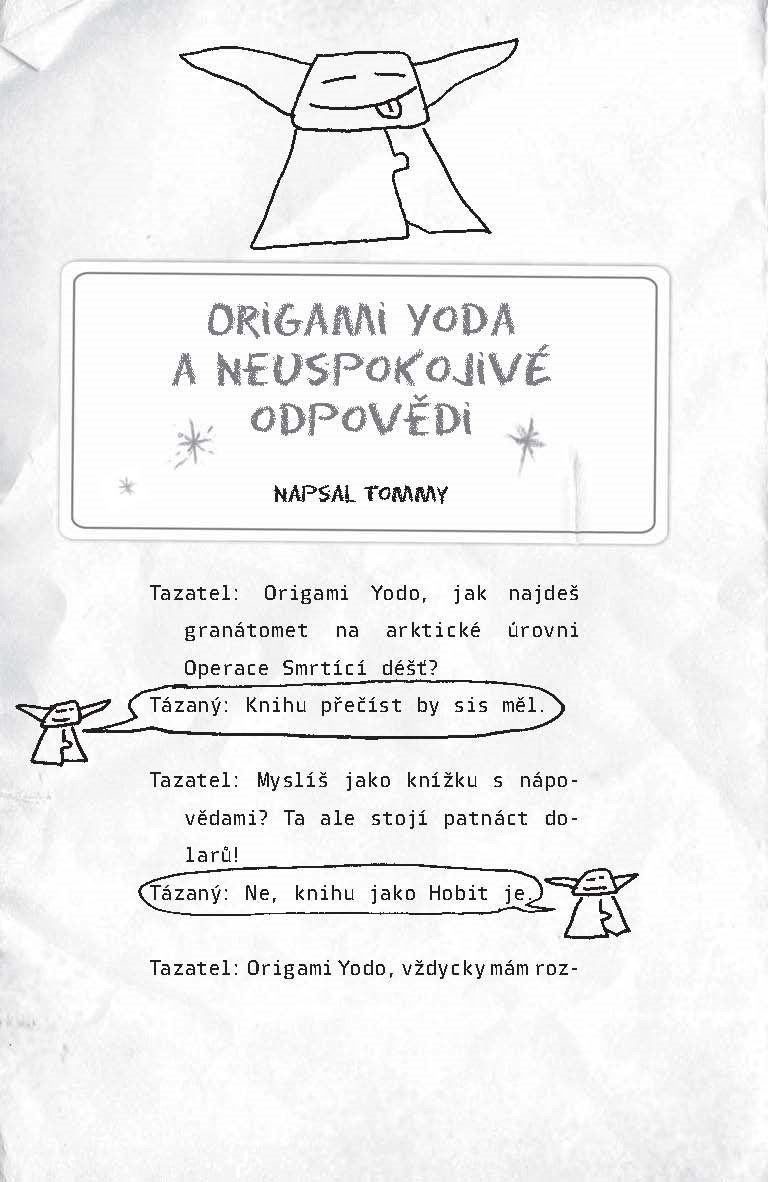 ORIGAMI YODA
A NEUSPOKOJIVÉ
ODPOVĚDI
NAPSAL TOMMY
Tazatel: Origami Yodo, jak najdeš
granátomet na arktické úrovni
Operace Smrtící déšť?
Tázaný: Knihu přečíst by sis měl.
Tazatel: Myslíš jako knížku s nápo-
vědami? Ta ale stojí patnáct do-
larů!
Tázaný: Ne, knihu jako Hobit je.
Tazatel: Origami Yodo, vždycky mám roz-